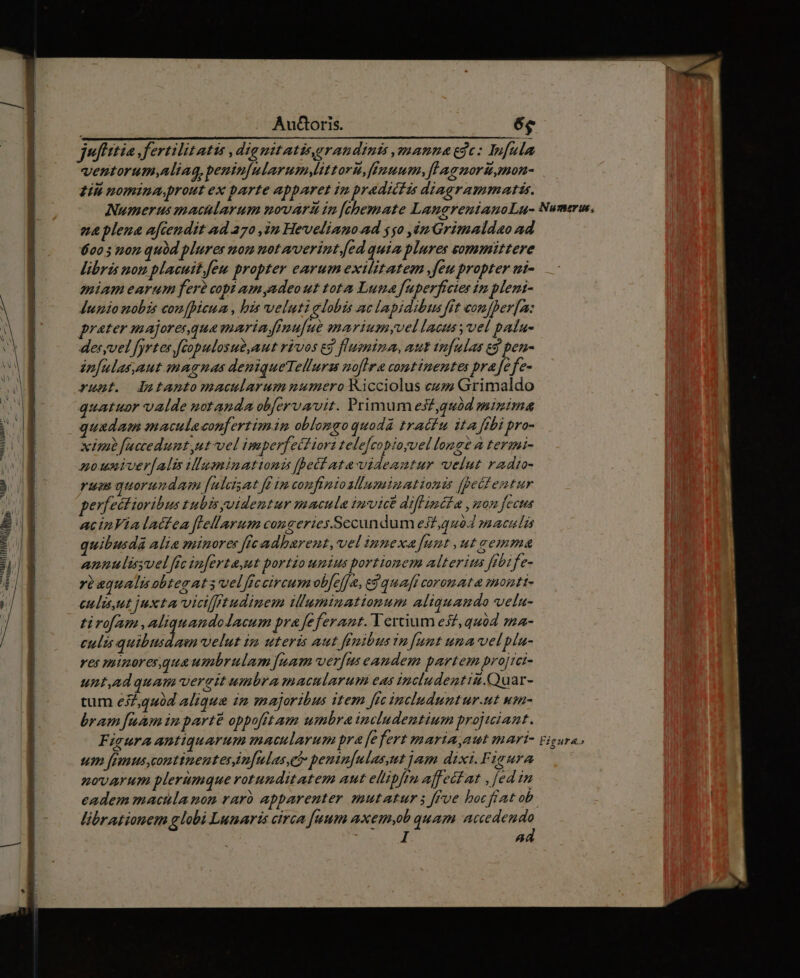 Auctoris. 65
justitiæ, fertilitatis, dignitatis, grandinis, mannæ &c: Insula
ventorum, aliaq; peninsularum, littorũ, sinuum, stagnorũ, mon-
tiũ nomina, prout ex parte apparet in prædictis diagrammatis.
Numerus macularum novarũ in schemate LangrenianoLu- Numerus.
na plena ascendit ad 270, in Heveliano ad 550, in Grimaldæo ad
600; non quòd plures non notaverint, sed quia plures committere
libris non placuit, seu propter earum exilitatem, seu propter ni-
miam earum ferè copiam, adeo ut tota Luna superficies in pleni-
lunio nobis conspicua, his veluti globis ac lapidibus sit conspersa:
præter majores, quæ maria, sinusuè marium, vel lacus, vel palu-
des, vel syrtes scopulosuè, aut rivos & flumina, aut insulas & pen-
insulas, aut magnas deniqueTelluris nostræ continentes præ se fe-
runt. In tanto macularum numero Ricciolus cum Grimaldo
quatuor valde notanda observavit. Primum est, quòd minimæ
quædam maculæ confertim in oblongo quodã tractu ita sibi pro-
ximè succedunt, ut vel imperfectiori telescopio, vel longè a termi-
no universalis illuminationis spectatæ videantur velut radio-
rum quorundam fulcisat si in confinio illuminationis spectentur
perfectioribus tubis, videntur maculæ invicẽ distinctæ, non secus
ac in Via lactea stellarum congeries. Secundum est, quòd maculis
quibusdã aliæ minores sic adhærent, vel innexæ sunt, ut gemmæ
annulis; vel sic insertæ, ut portio unius portionem alterius sibi fe-
rè æqualis obtegat; vel sic circum obsessæ, & quasi coronatæ monti-
culis, ut juxta vicissitudinem illuminationum aliquando velu-
ti rosam, aliquando lacum præ se ferant. Tertium est, quòd ma-
culis quibusdam velut in uteris aut sinibus in sunt una vel plu-
res minores, quæ umbrulam suam versus eandem partem projici-
unt, ad quam vergit umbra macularum eas includentiũ. Quar-
tum est, quòd aliquæ in majoribus item sic includuntur, ut um-
bram suam in partẽ oppositam umbræ includentium projiciant.
Figura antiquarum macularum præ se fert maria, aut mari- Figura.
um sinus, continentes, insulas, & peninsulas, ut jam dixi. Figura
novarum plerùmque rotunditatem aut ellipsin affectat, sed in
eadem maculâ non rarò apparenter mutatur; sive hoc fiat ob
librationem globi Lunaris circa suum axem, ob quam accedendo
I ad